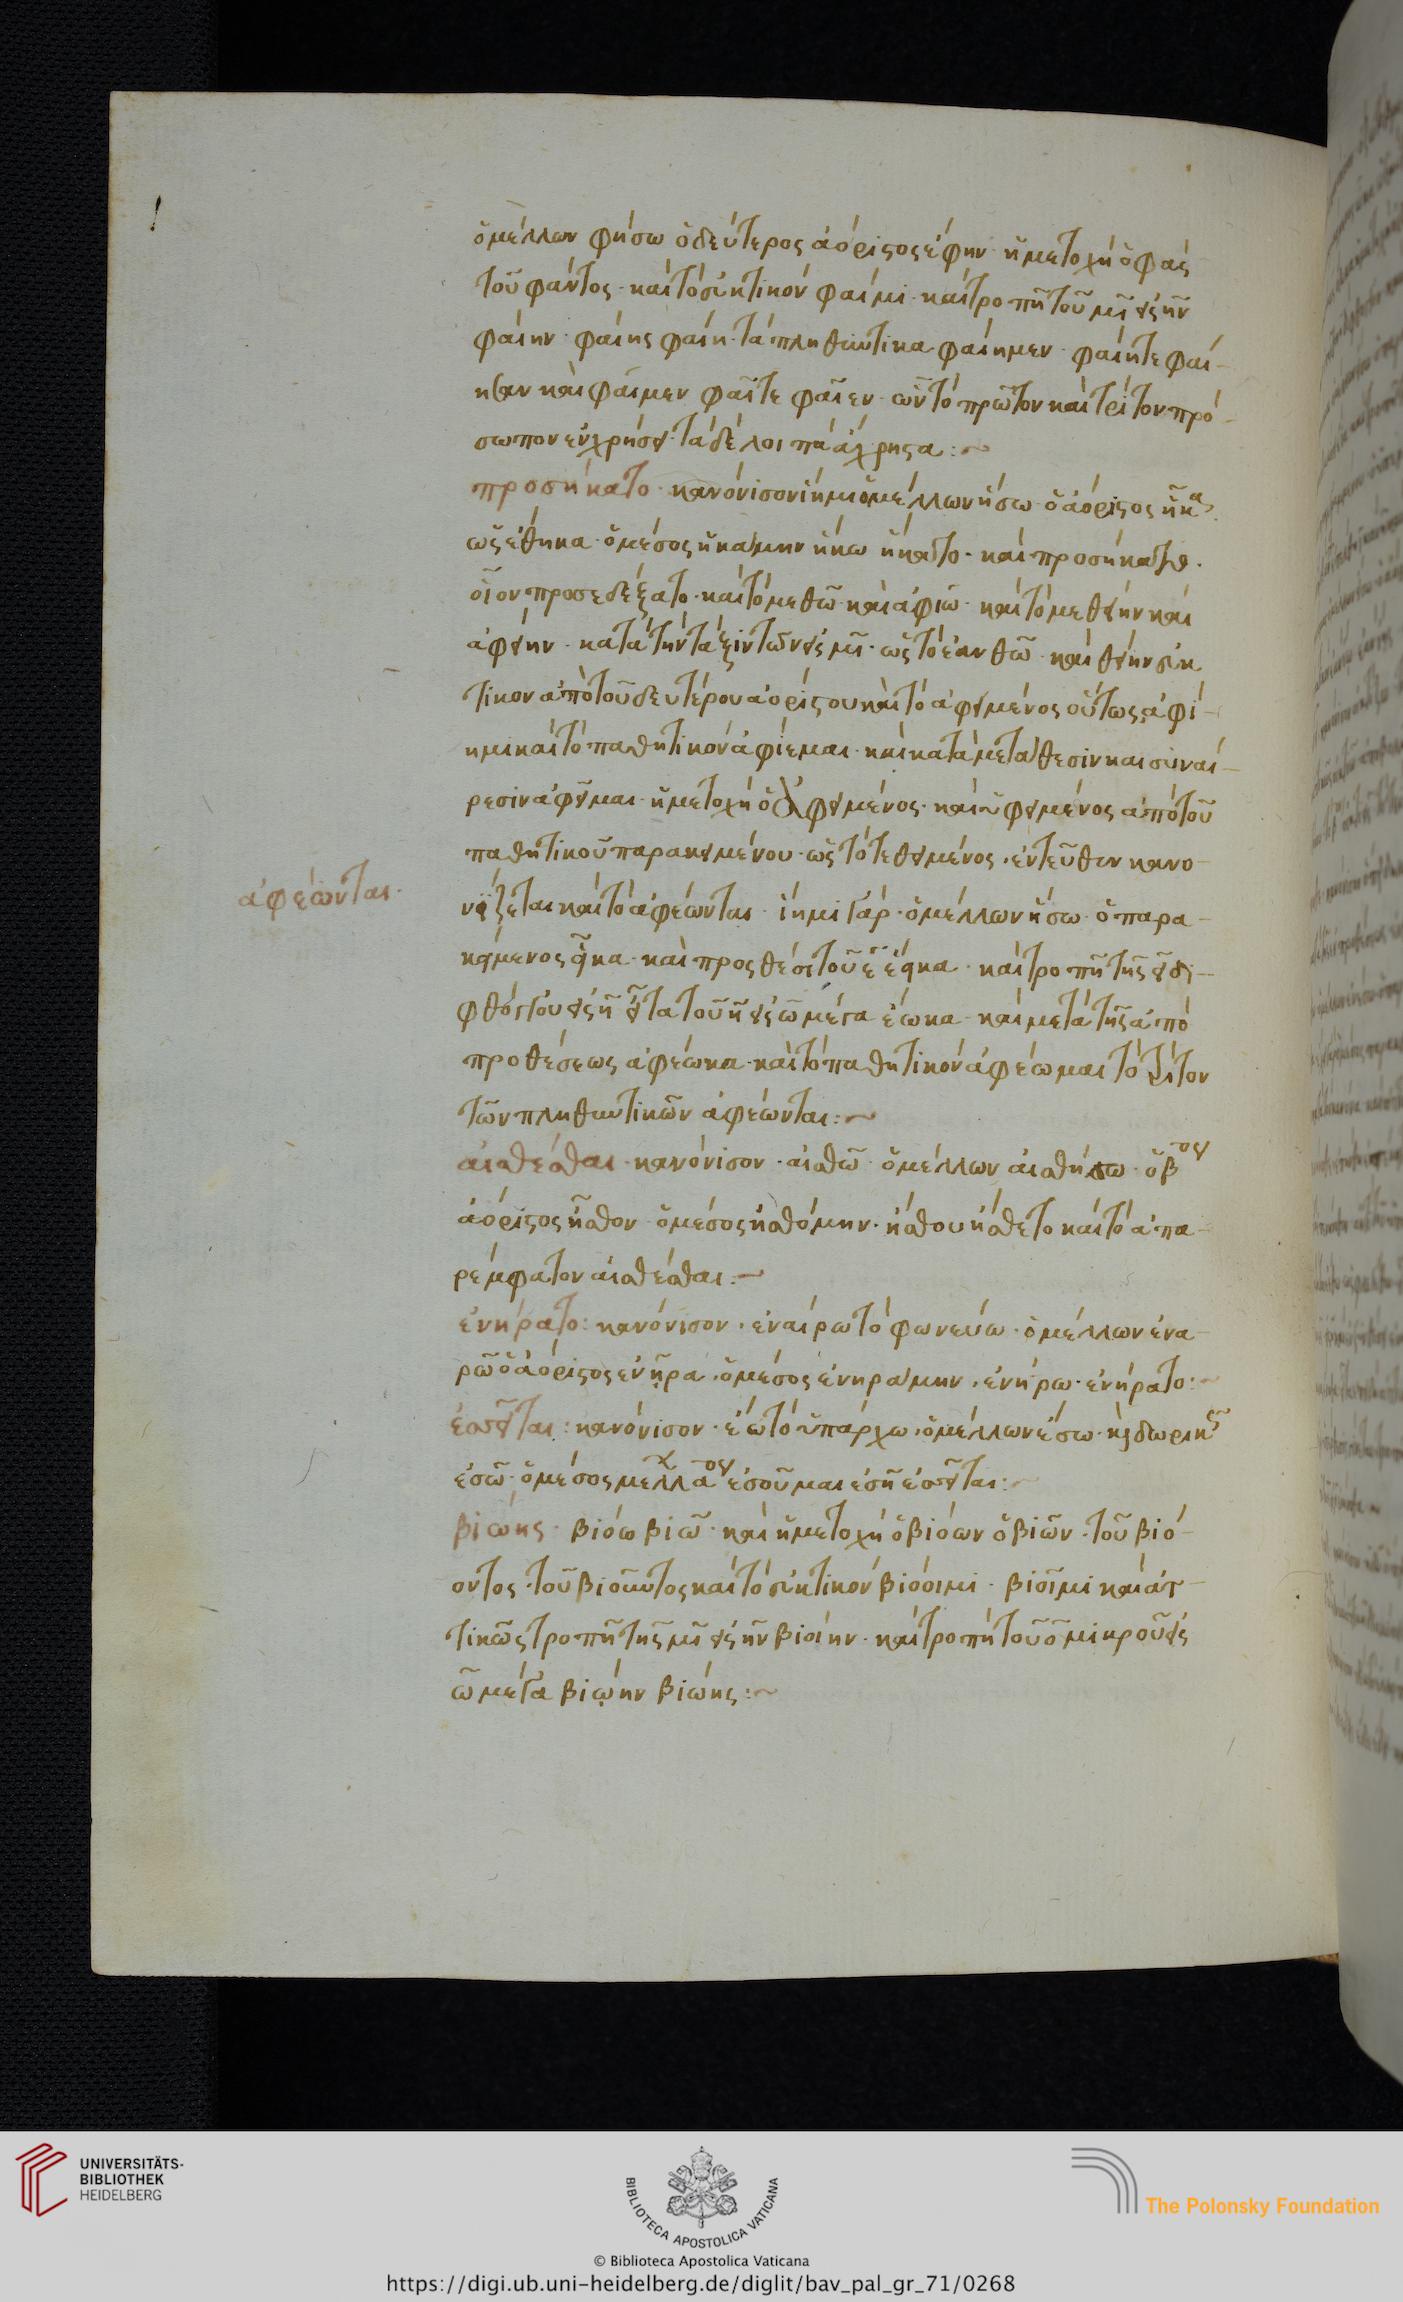 ὁ μέλλων φήσω ὁ δεύτερος ἀόριστος ἔφην· ἡ μετοχὴ ὁ φὰς
τοῦ φάντος· καὶ τὸ εὐκτικὸν φαίμι· καὶ τροπῇ τοῦ μῑ εἰς ην
φαίην· φαίης φαίη· τὰ πληθυντικα φαίημεν· φαίητε φαί-
ησαν καὶ φαῖμεν φαῖτε φαῖεν· ὧν τὸ πρῶτον καὶ τρίτον πρό-
σωπον ἐν χρήσει· τὰ δὲ λοιπὰ ἄχρηστα:~
προσήκατο· κανόνισον ἵημι ὁ μέλλων ἥσω· ὁ ἀόριστος ἧκα
ὡς ἔθηκα· ὁ μέσος ἡκάμην ἥκω ἥκατο· καὶ προσήκατο·
οἷον προσεδέξατο· καὶ τὸ μεθῶ· καὶ ἀφιῶ· καὶ τὸ μεθείην καὶ
ἀφείην· κατὰ τὴν τάξιν τῶν εἰς μῑ· ὡς τὸ ἐὰν θῶ· καὶ θείην εὐκ
τικον ἀπὸ τοῦ δευτέρου ἀορίστου καὶ τὸ ἀφειμένος οὕτως, ἀφί-
ημι καὶ τὸ παθητικὸν ἀφίεμαι· καὶ κατὰ μετάθεσιν καὶ συναί-
ρεσιν ἀφεῖμαι· ἡ μετοχὴ ὁ ἀφειμένος· καὶ ὑφειμένος ἀπὸ τοῦ
παθητικοῦ παρακειμένου· ὡς τὸ τεθειμένος· ἐντεῦθεν κανο-
νίζεται καὶ τὸ ἀφέωνται· ἵημι γάρ· ὁ μέλλων ἥσω· ὁ παρα-
κείμενος εἷκα· καὶ προςθέσει τοῦ ε ἕεικα· καὶ τροπῇ τῆς ει δι-
φθόγγου εἰς η εἶτα τοῦ η εἰς ω μέγα ἕωκα· καὶ μετὰ τῆς ἀπὸ
προθέσεως ἀφέωκα· καὶ τὸ παθητικὸν ἀφέωμαι τὸ τρίτον
τῶν πληθυντικῶν ἀφέωνται:~
ἀφέωνται·
αἰσθέσθαι· κανόνισον· αἰσθῶ· ὁ μέλλων αἰσθήσω· ὁ βος
ἀόριστος ἦσθον· ὁ μέσος ἠσθόμην· ἤσθου ἤσθετο καὶ τὸ ἀπα-
ρέμφατον αἰσθέσθαι:~
ἐνήρατο: κανόνισον· ἐναίρω τὸ φωνεύω· ὁ μέλλων ἐνα-
ρῶ ὁ ἀόριστος ἐνῆρα· ὁ μέσος ἐνηράμην· ἐνήρω· ἐνήρατο:~
ἐσεῖται: κανόνισον· ἔω τὸ ὑπάρχω· ὁ μέλλων ἔσω· καὶ δωρικῶς
ἐσῶ· ὁ μέσος μέλλων ἐσοῦμαι ἐσῇ ἐσεῖται:~
βιώης· βιόω βιῶ· καὶ ἡ μετοχὴ ὁ βιόων ὁ βιῶν· τοῦ βιό-
οντος· τοῦ βιοῦντος καὶ τὸ εὐκτικὸν βιόοιμι· βιοῖμι καὶ ἀτ-
τικῶς τροπῇ τῆς μῑ εἰς ην βιοίην· καὶ τροπῇ τοῦ ο μικροῦ εἰς
ω μέγα βιῴην βιώης:~
UNIVERSITÄTS-
BIBLIOTHEK
HEIDELBERG
BIBLIOTECA APOSTOLICA VATICANA
© Biblioteca Apostolica Vaticana
The Polonsky Foundation
https://digi.ub.uni-heidelberg.de/diglit/bav_pal_gr_71/0268